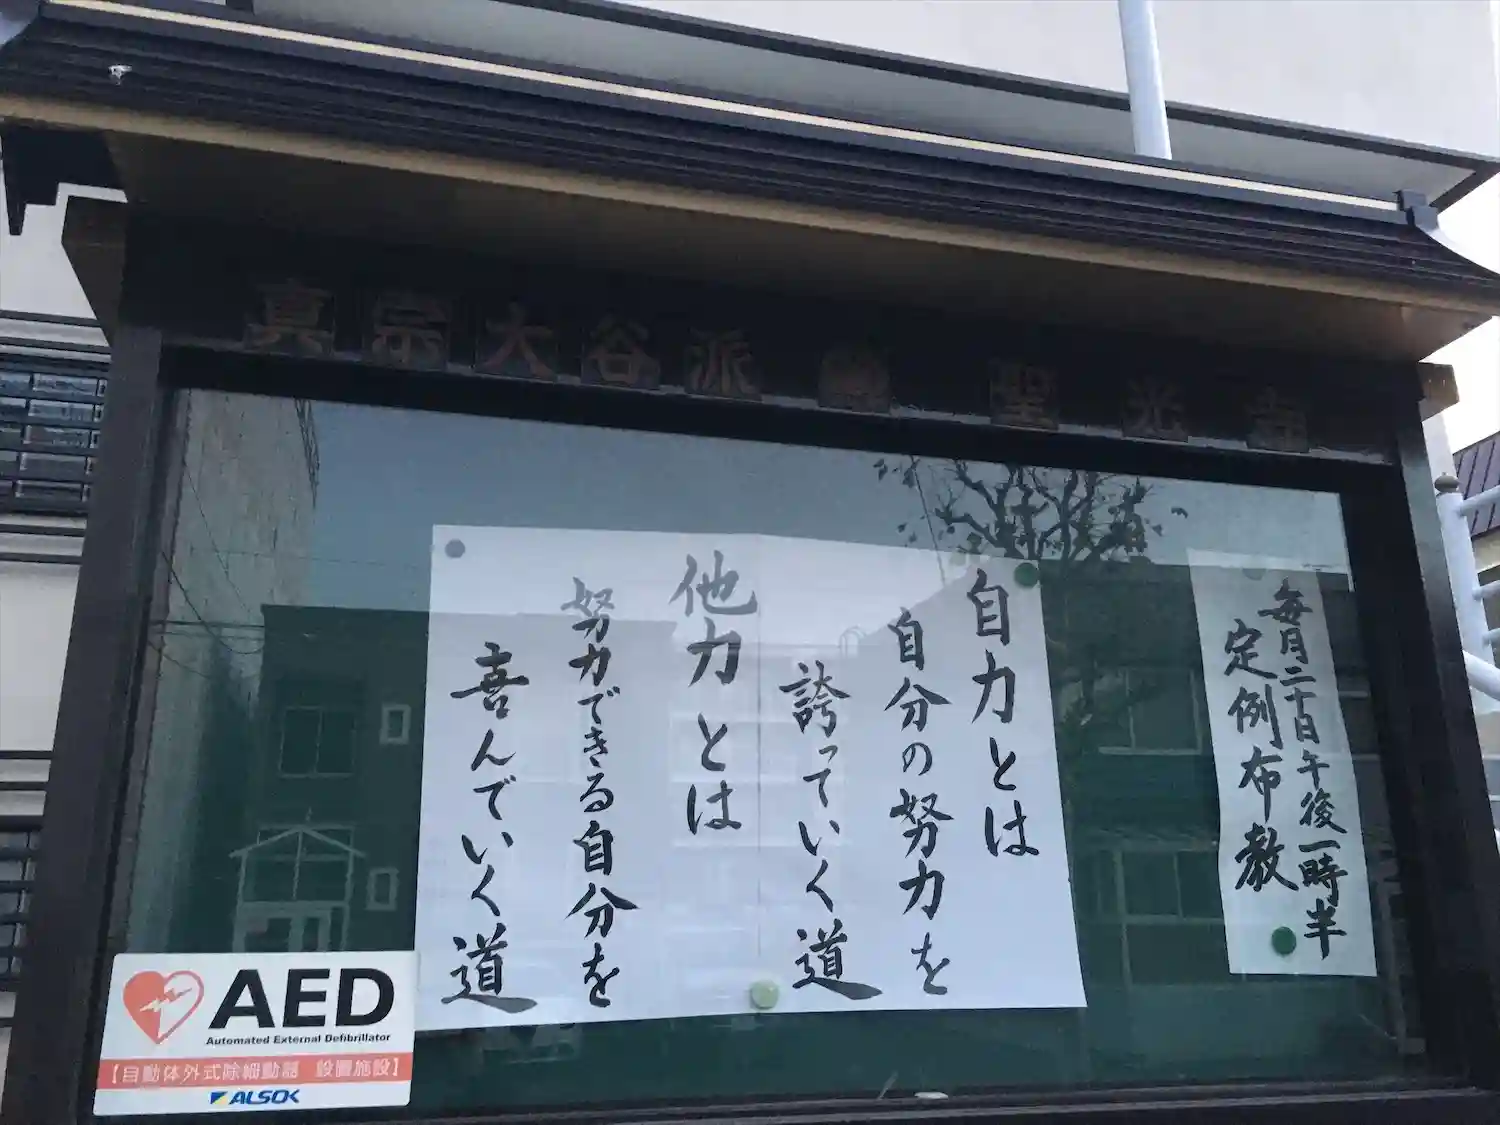 真宗大谷派 聖光寺
毎月二十日午後一時半
定例布教
自力とは
自分の努力を
誇っていく道
他力とは
努力できる自分を
喜んでいく道
AED
Automated External Defibrillator
【自動体外式除細動器 設置施設】
ALSOK